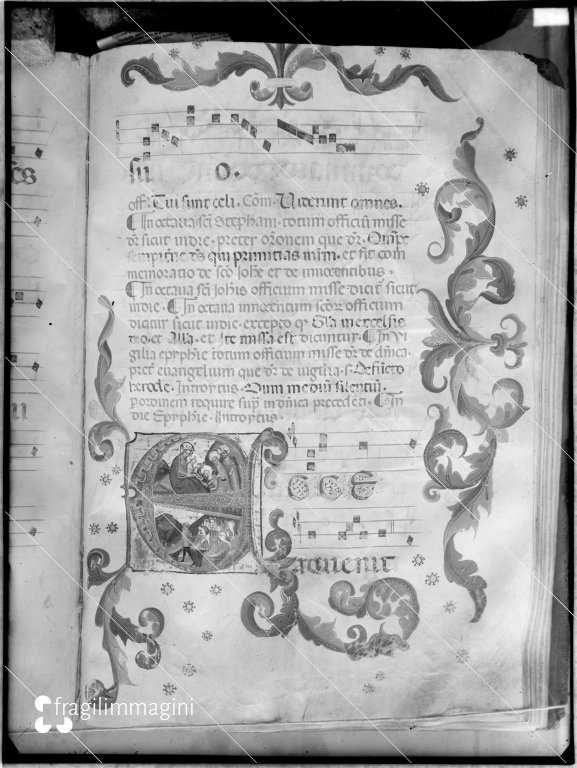 su o.
off. Tui sunt celi. Com. Viderunt omnes.
In octava sci Stephani totum officiu misse
dr sicut in die, preter oronem que dr. Omps
sempitne ds qui primitias mrm. et fit com
memoratio de sco Johe et de innocentibus.
In octava sci Johis officium misse dicit sicut
in die. In octava innocentum scor officium
dicatur sicut in die excepto q Gla in excelsis
deo. et Alla. et Ite missa est dicuntur. In vi
gilia epyphie totum officium misse dr de dnica.
pret evangelium que dr de vigilia. s. Defucto
herode. Introytus. Dum mediu silentiu.
p ordinem require sup in dnica precedeti. In
die Epyphie. Introytus
ECCE
advenit
fragilimmagini